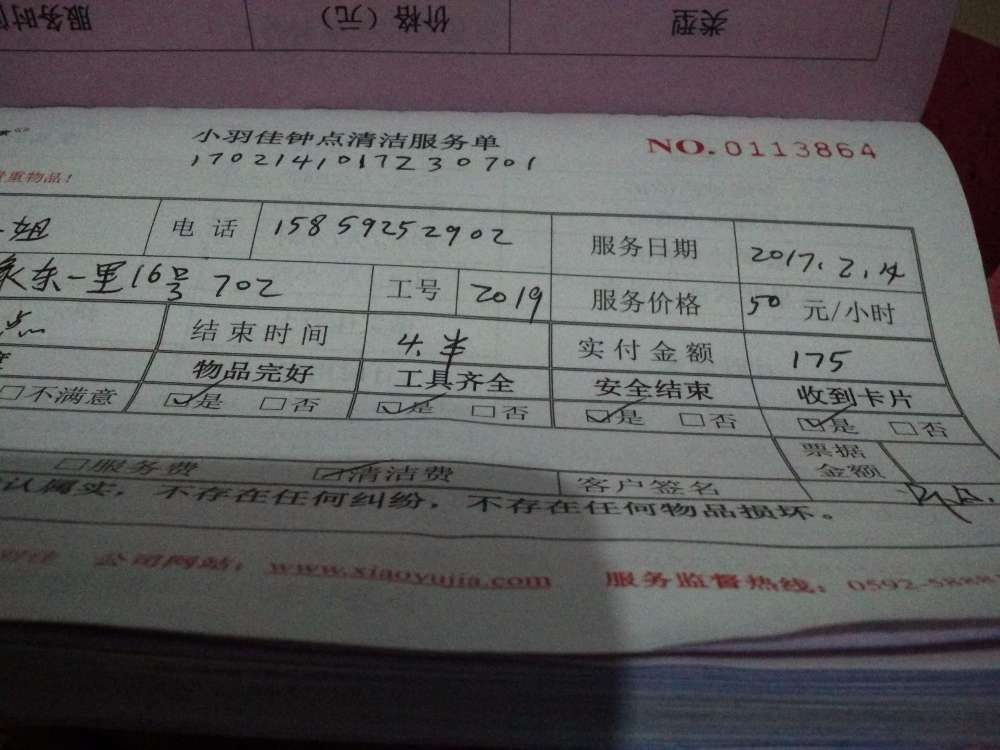 服务时 价格（元） 类型
小羽佳钟点清洁服务单 NO.0113864
170214101723070１
重物品！
姐 电话 15859252902 服务日期 2017.2.14
东一里16号702 工号 2019 服务价格 50 元/小时
点 结束时间 4.半 实付金额 175
物品完好 工具齐全 安全结束 收到卡片
□不满意 ☑是 □否 ☑是 □否 ☑是 □否 ☑是 □否
□服务费 ☑清洁费 客户签名 票据金额
认属实，不存在任何纠纷，不存在任何物品损坏。
公司网站：www.xiaoyujia.com 服务监督热线：0592-5888